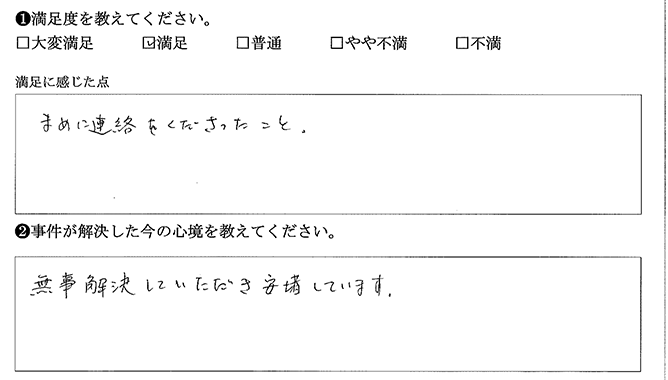 ❶満足度を教えてください。
□大変満足 ☑満足 □普通 □やや不満 □不満
満足に感じた点
まめに連絡をくださったこと。
❷事件が解決した今の心境を教えてください。
無事解決していただき安堵しています。